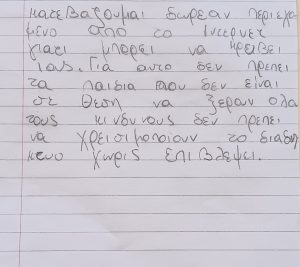 κατεβαζουμαι δωρεαν περιεχο
μενο απο το Ιντερνετ
γιατι μπορει να κρειβει
ιους. Για αυτο δεν πρεπει
τα παιδια που δεν ειναι
σε θεση να ξεραν ολα
τους κινδυνους δεν πρεπει
να χρεισιμοποιουν το διαδη
κτυο χωρις επιβλεψει.